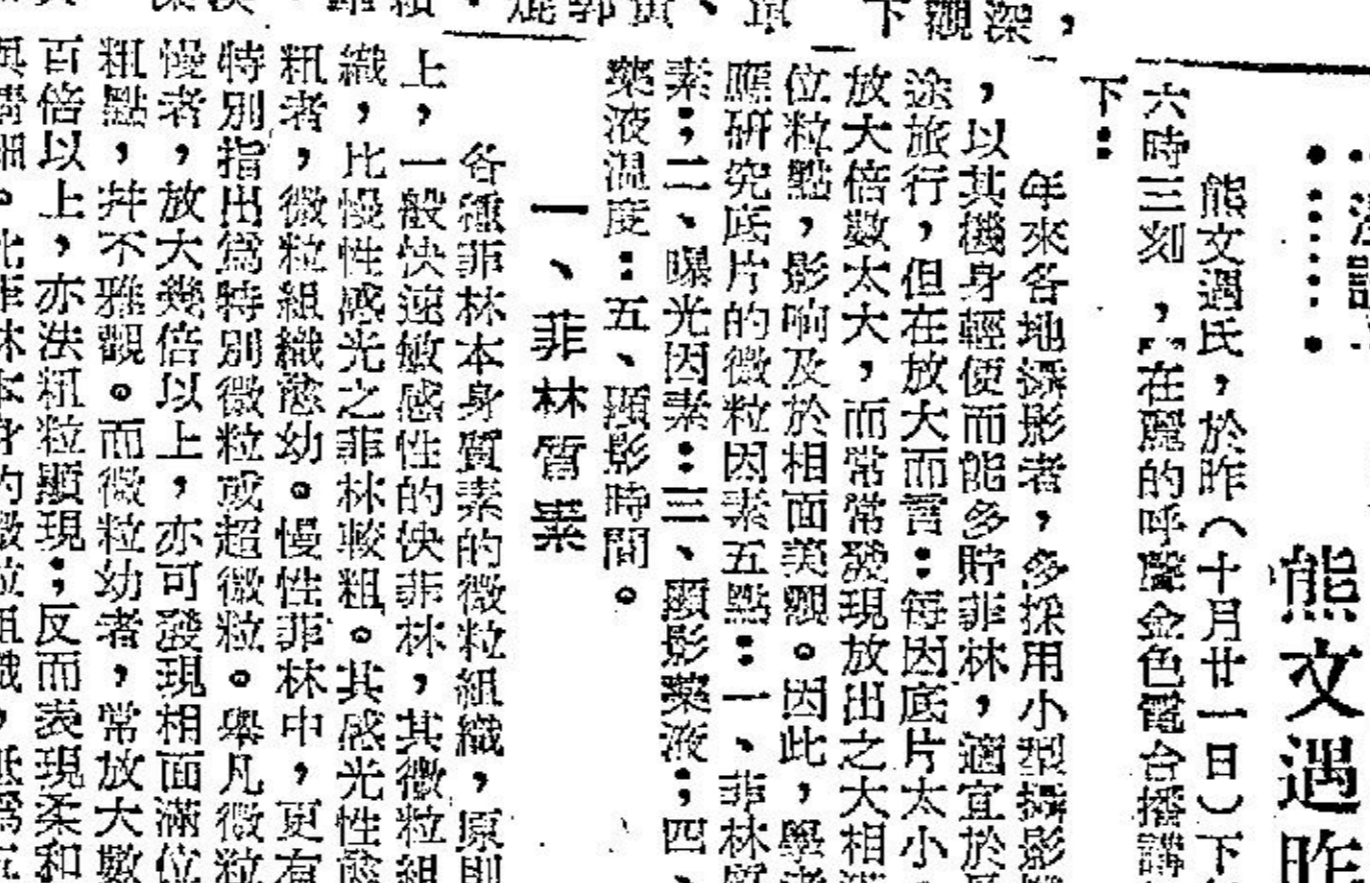 熊文遇昨
熊文遇氏，於昨（十月廿一日）下
六時三刻，在麗的呼聲金色電台播講
下：
年來各地攝影者，多採用小型攝影
，以其機身輕便而能多貯菲林，適宜於
途旅行，但在放大而言：每因底片太小
放大倍數太大，而常常發現放出之大相
位粒點，影响及於相面美觀。因此，學者
應研究底片的微粒因素五點：一、菲林質
素；二、曝光因素：三、顯影藥液；四、
藥液溫度：五、顯影時間。
一、菲林質素
各種菲林本身質素的微粒組織，原則
上，一般快速敏感性的快菲林，其微粒組
織，比慢性感光之菲林較粗。其感光性愈
粗者，微粒組織愈幼。慢性菲林中，更有
特別指出為特別微粒或超微粒。舉凡微粒
慢者，放大幾倍以上，亦可發現相面滿位
粗點，幷不雅觀。而微粒幼者，常放大數
百倍以上，亦法粗粒顯現；反而表現柔和